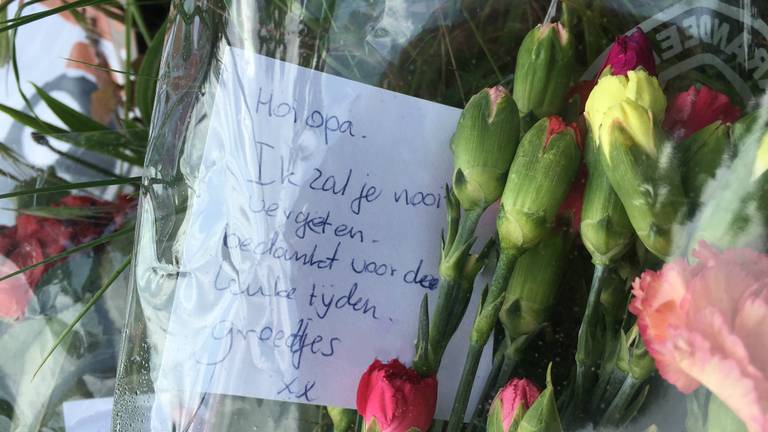 Hoi opa.
Ik zal je nooi
vergeten.
bedankt voor de
leuke tijden.
groetjes
xx